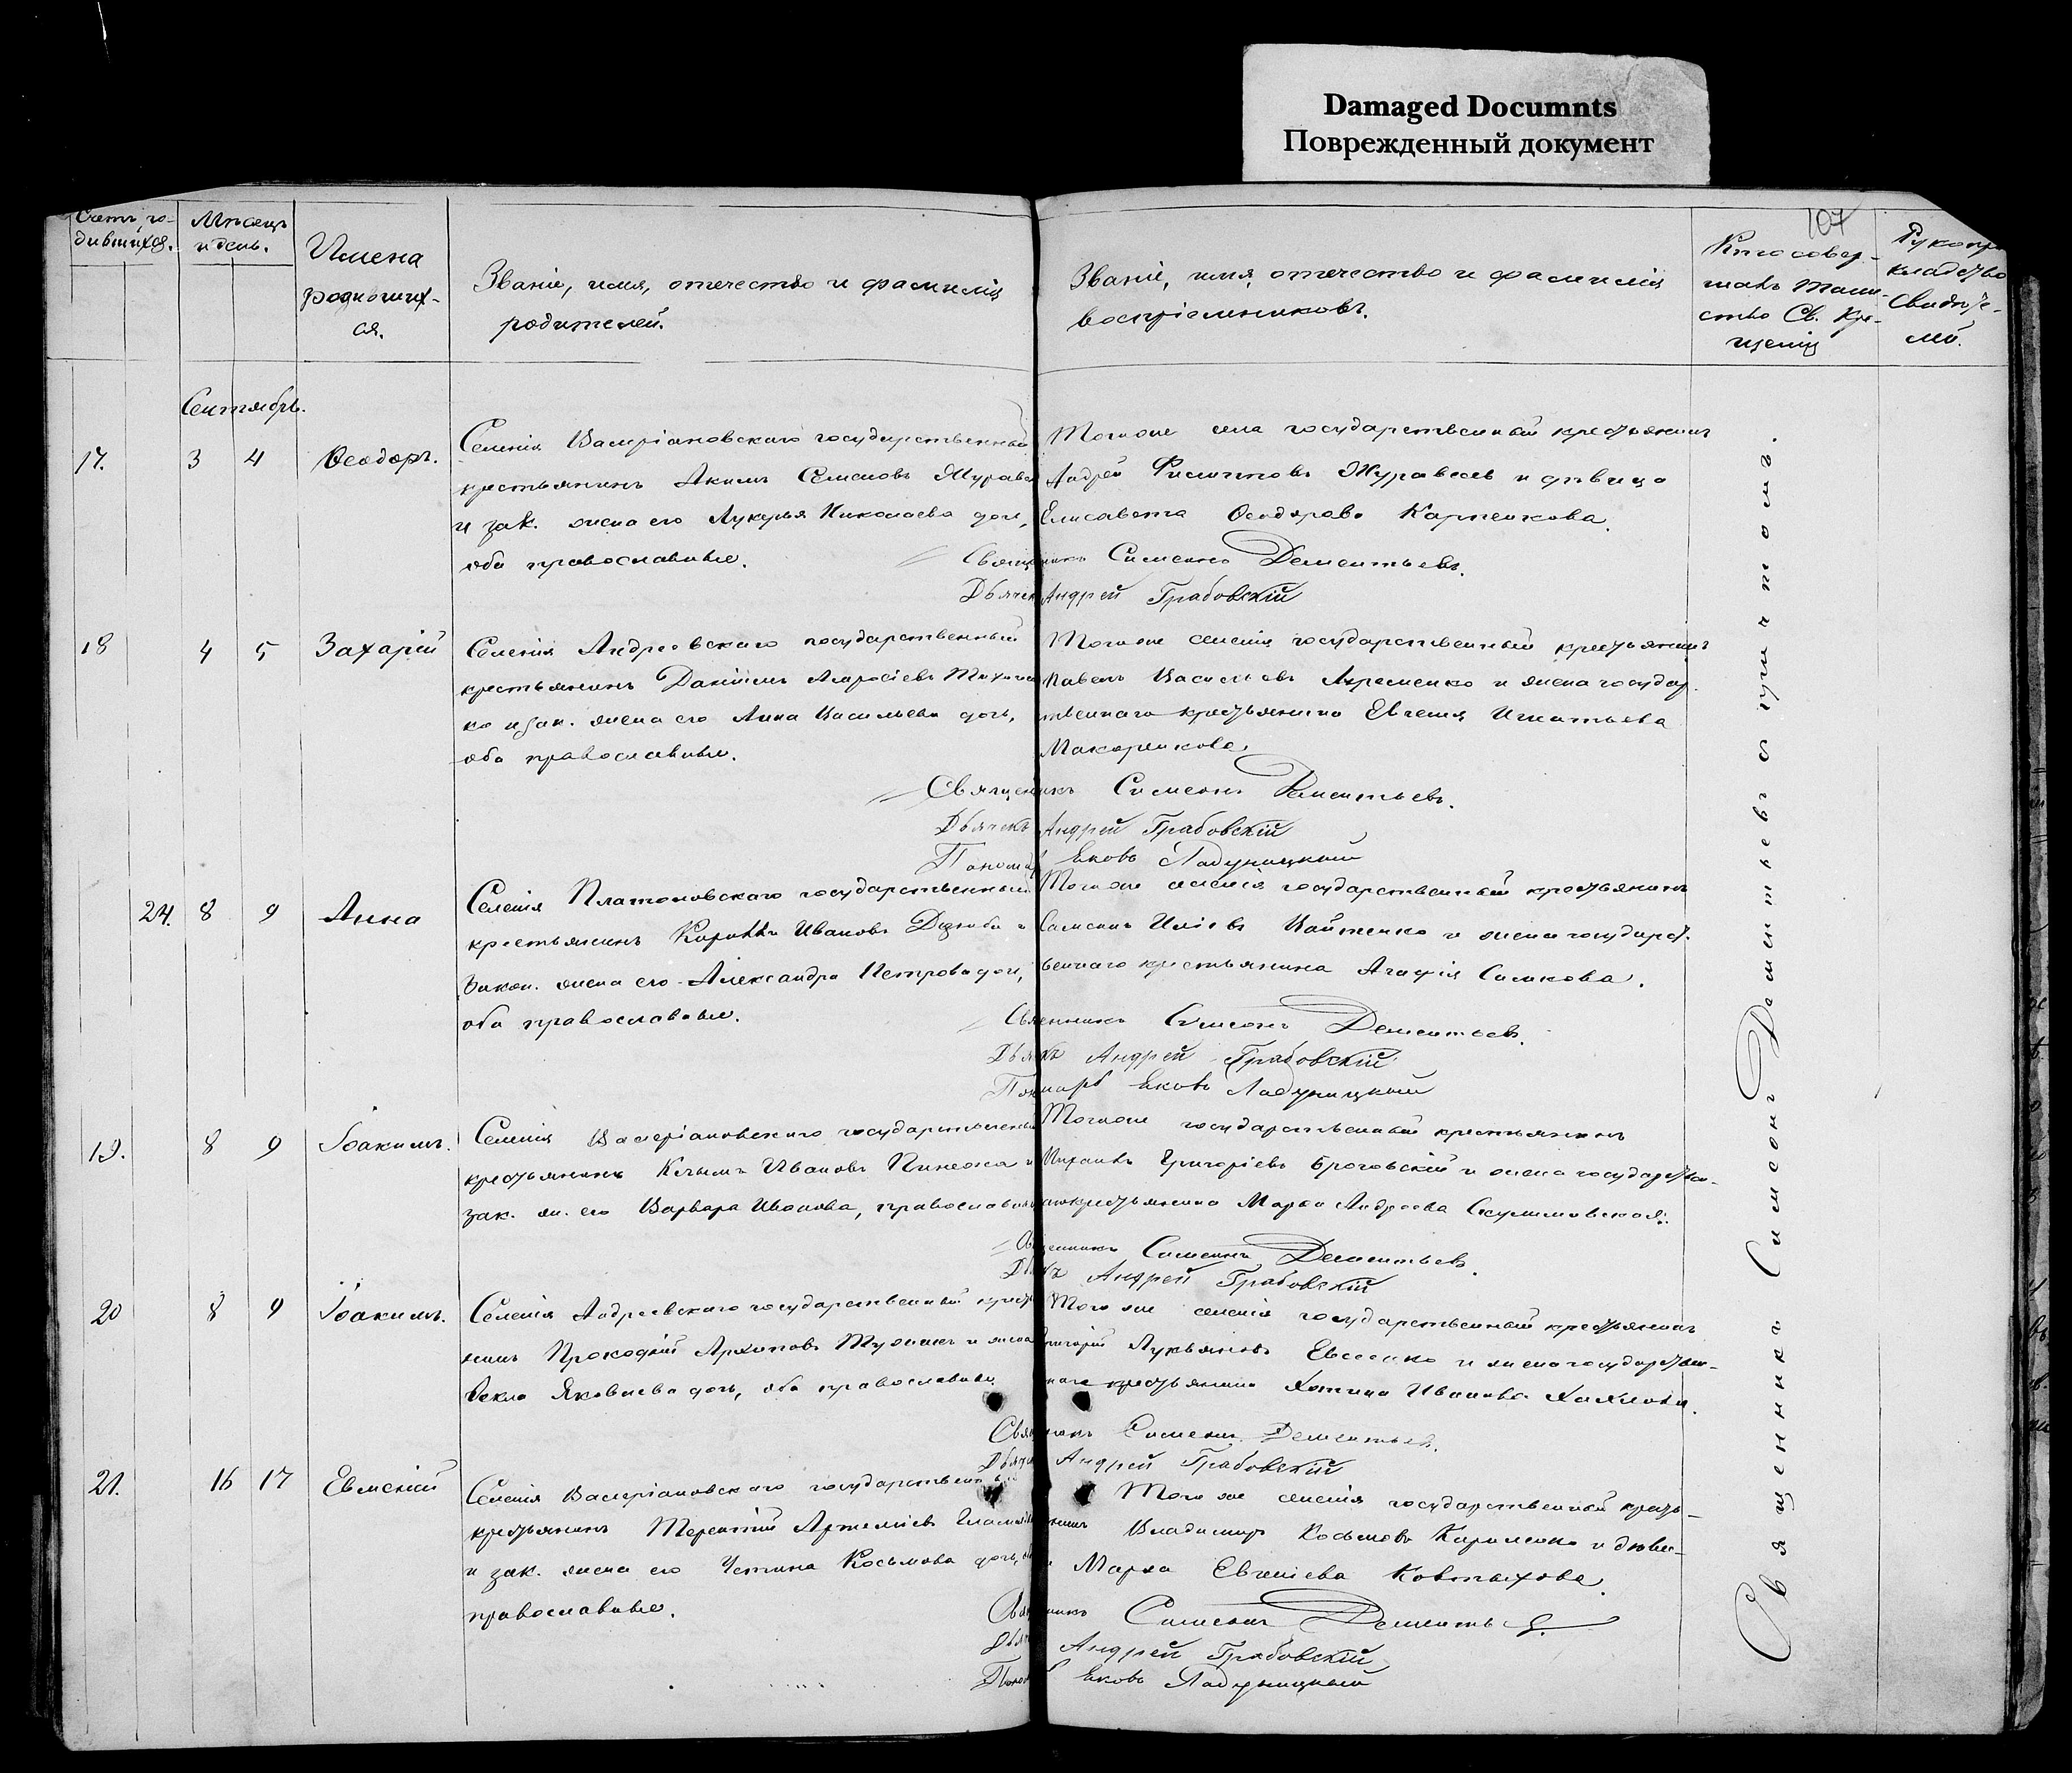 Damaged Documnts
Поврежденный документ
107
Счетъ ро-
дившихся.
Мѣсяцъ
и день.
Имена
родивших-
ся.
Званіе, имя, отчество и фамилія
родителей.
Званіе, имя, отчество и фамилія
воспріемниковъ.
Кто совер-
шалъ таин-
ство Св. Кре-
щенія
Рукопри
кладство
Свидѣте-
лей.
Сентябрь.
17. 3 4 Ѳеодоръ.
Селенія Валеріановскаго государственный
крестьянинъ Акимъ Семеновъ Журавел
и зак. жена его Лукерья Николаева доч,
оба православные.
Того же села государственный крестьянинъ
Андрей Филиповъ Журавель и дѣвица
Елисавета Ѳеодорова Карпенкова.
Священникъ Симеонъ Дементьевъ.
Дьячекъ Андрей Грабовскій
18 4 5 Захарій
Селенія Андреевскаго государственный
крестьянинъ Даніилъ
ко и зак. жена его Анна Васильева дочь,
оба православные.
Того же селенія государственный крестьянинъ
Павелъ Васильевъ и жена государ-
ственнаго крестьянина Евгенія Игнатьева
Макаренкова.
Священникъ Симеонъ Дементьевъ.
Дьячекъ Андрей Грабовскій
Пономарь Яковъ Ладуницкий
24. 8 9 Анна
Селенія Платоновскаго государственный
крестьянинъ Кириллъ Ивановъ Дзюба и
Закон. жена его Александра Петрова доч,
оба православные.
Того же селенія государственный крестьянинъ
Симеонъ Иліевъ Войтенко и жена государст-
веннаго крестьянина Агафія Симкова.
Священникъ Симеонъ Дементьевъ.
Дьячекъ Андрей Грабовскій
Пономарь Яковъ Ладуницкий
19. 8 9 Іоакимъ.
Селенія Валеріановскаго государственный
крестьянинъ Климъ Ивановъ и
зак. ж. его Варвара Иванова, православные
Того же государственный крестьянинъ
Михаилъ Григоріевъ Броговскій и жена государствен-
наго крестьянина Марѳа Андреева
Священникъ Симеонъ Дементьевъ.
Дьячекъ Андрей Грабовскій
20 8 9 Іоакимъ.
Селенія Андреевскаго государственный кресть
янинъ Прокофій Архиповъ и жена
Ѳекла Яковлева дочь, оба православные
Того же селенія государственный крестьянинъ
Григорій Лукьяновъ Евсеенко и жена государствен-
наго крестьянина Хотина Иванова
Священникъ Симеонъ Дементьевъ.
Дьячекъ Андрей Грабовскій
21. 16 17 Евменій
Селенія Валеріановскаго государственный
крестьянинъ Терентій Артеміевъ
и зак. жена его Устина Косьмова дочь, оба
православные.
Того же селенія государственный кресть-
янинъ Владимиръ Косьмовъ и дѣви-
ца Марѳа Евгеніева Ковтыхова.
Священникъ Симеонъ Дементьевъ.
Дьячекъ Андрей Грабовскій
Пономарь Яковъ Ладуницкий
Священникъ Симеонъ Дементьевъ